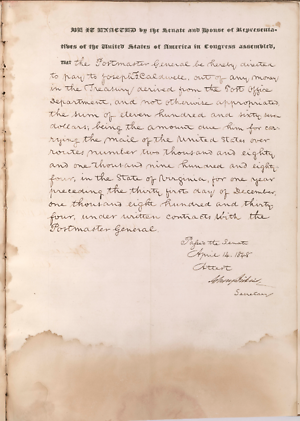 BE IT ENACTED by the Senate and House of Representa-
tives of the United States of America in Congress assembled,
THAT the Postmaster General be hereby directed
to pay to Joseph F. Caldwell, out of any money
in the Treasury derived from the Post Office
department, and not otherwise appropriated
the sum of eleven hundred and sixty seven
dollars, being the amount due him for car-
rying the mail of the United States over
routes number two thousand and eighty
and one thousand nine hundred and eighty
four, in the State of Virginia, for one year
preceding the thirty first day of December,
one thousand eight hundred and thirty
four, under written contracts with the
Postmaster General.
Passed the Senate
April 14.
Attest
Secretary